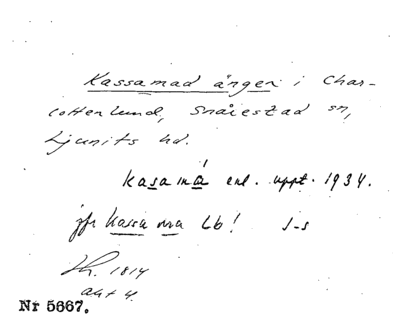 Kassamad ängen i Char-
lottenlund, Snårestad sn,
Ljunits hd.
kasamá enl. uppt. 1934.
jfr Kassa ma Lb! J-s
1814
akt 4.
Nr 5667.